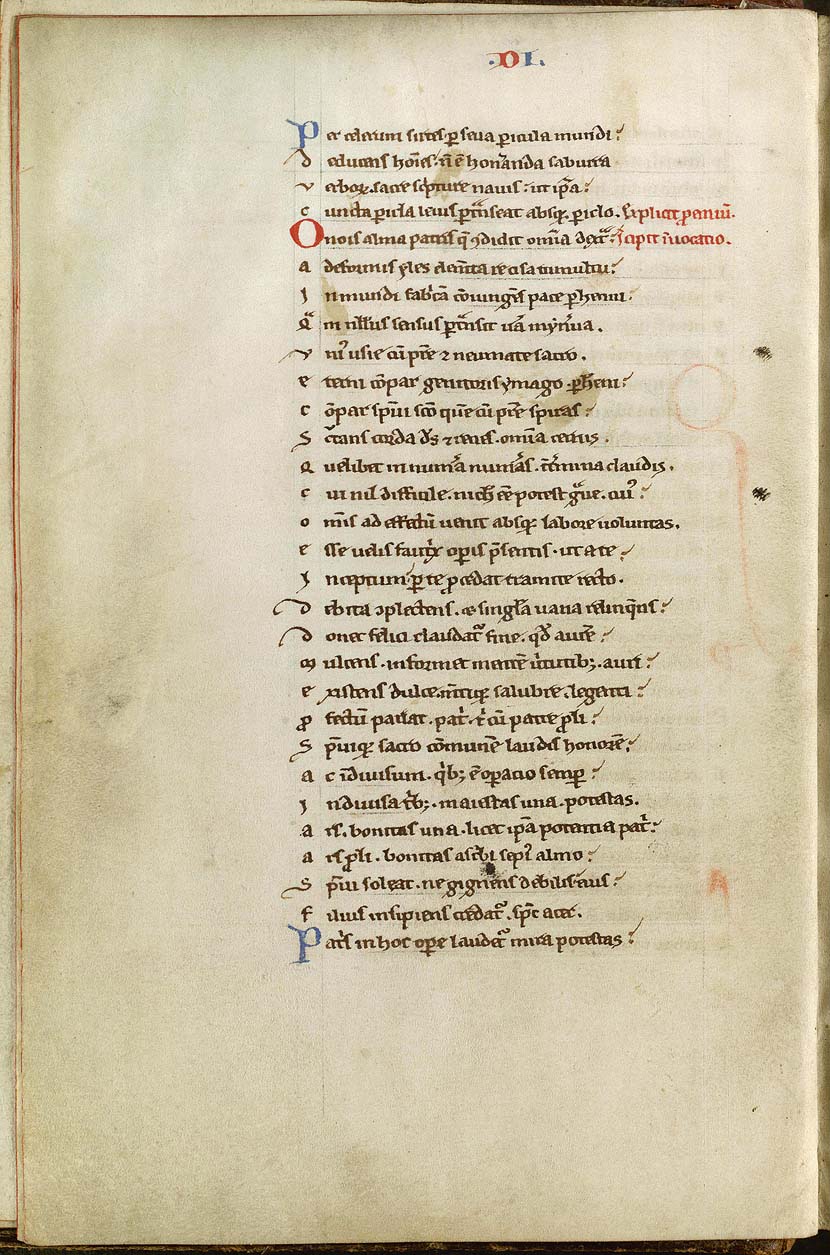 .DI.
Per celerum sirtes ꝑ seua ꝑicula mundi
deducens hoīes. n̄ ē honˀanda saburra
verboꝝ. sacre scͥpture nauis. ut ip̄a
cuncta ꝑicl̄a leuis ꝑtͣnseat absqꝫ ꝑiclo. Explicit proemiū.
O nois alma patris q̄ ꝯdidit om̄ia dextͣ Incipit īuocatio.
a deformis yles elem̄ta recisa tumultu
I n mundi fabͥcā cōiungēs pace ꝑhenni
Qͣ m nll̄ius sensus ꝑtͣnsit uīa mynˀua.
vnꝰ usie cū pr̄e ⁊ neumate sacro.
eterni cōpar genitoris ymago ꝑhenni
cōpar spūi scō quem cū pr̄e spiras
Scͣtans corda dˢ ⁊ renes. om̄ia certis.
Quelibet in numˀa numˀas. tˀmina claudis.
cui nil difficile. nich̄ ēē potest gͣue. cuiꝰ
omīs ad effectū uenit absqꝫ labore uoluntas.
esse uelis fautͥx operis p̄sentis. ut a te
Inceptum ꝑ te ꝓcedat tramite recto.
debita ꝯplectens. ac singl̄a uana relinq̄ns
donec felici claudatͬ fine. qd̓ aurē
mulcens. informet mentē uͥtutibꝫ. auri
existens dulce. m̄tiqꝫ salubre. legenti
ꝓfectū pariat. patͥ ⁊ cū patre ꝓli
Sp̄uiqꝫ sacro cōmunē laudis honorē
ac īdiuisum. qͥbꝫ ē oꝑacio semꝑ
Indiuisa tͥbꝫ. maiestas una. potestas.
ars. bonitas una. licet ip̄a potentia patͥ
ars ꝓli. bonitas ascͥbi sepꝰ almo
Sp̄ui soleat. ne gignens debilis eius
filius insipiens credatͬ. sp̄c acer.
Patͥs in hoc opere laudetͬ mira potestas